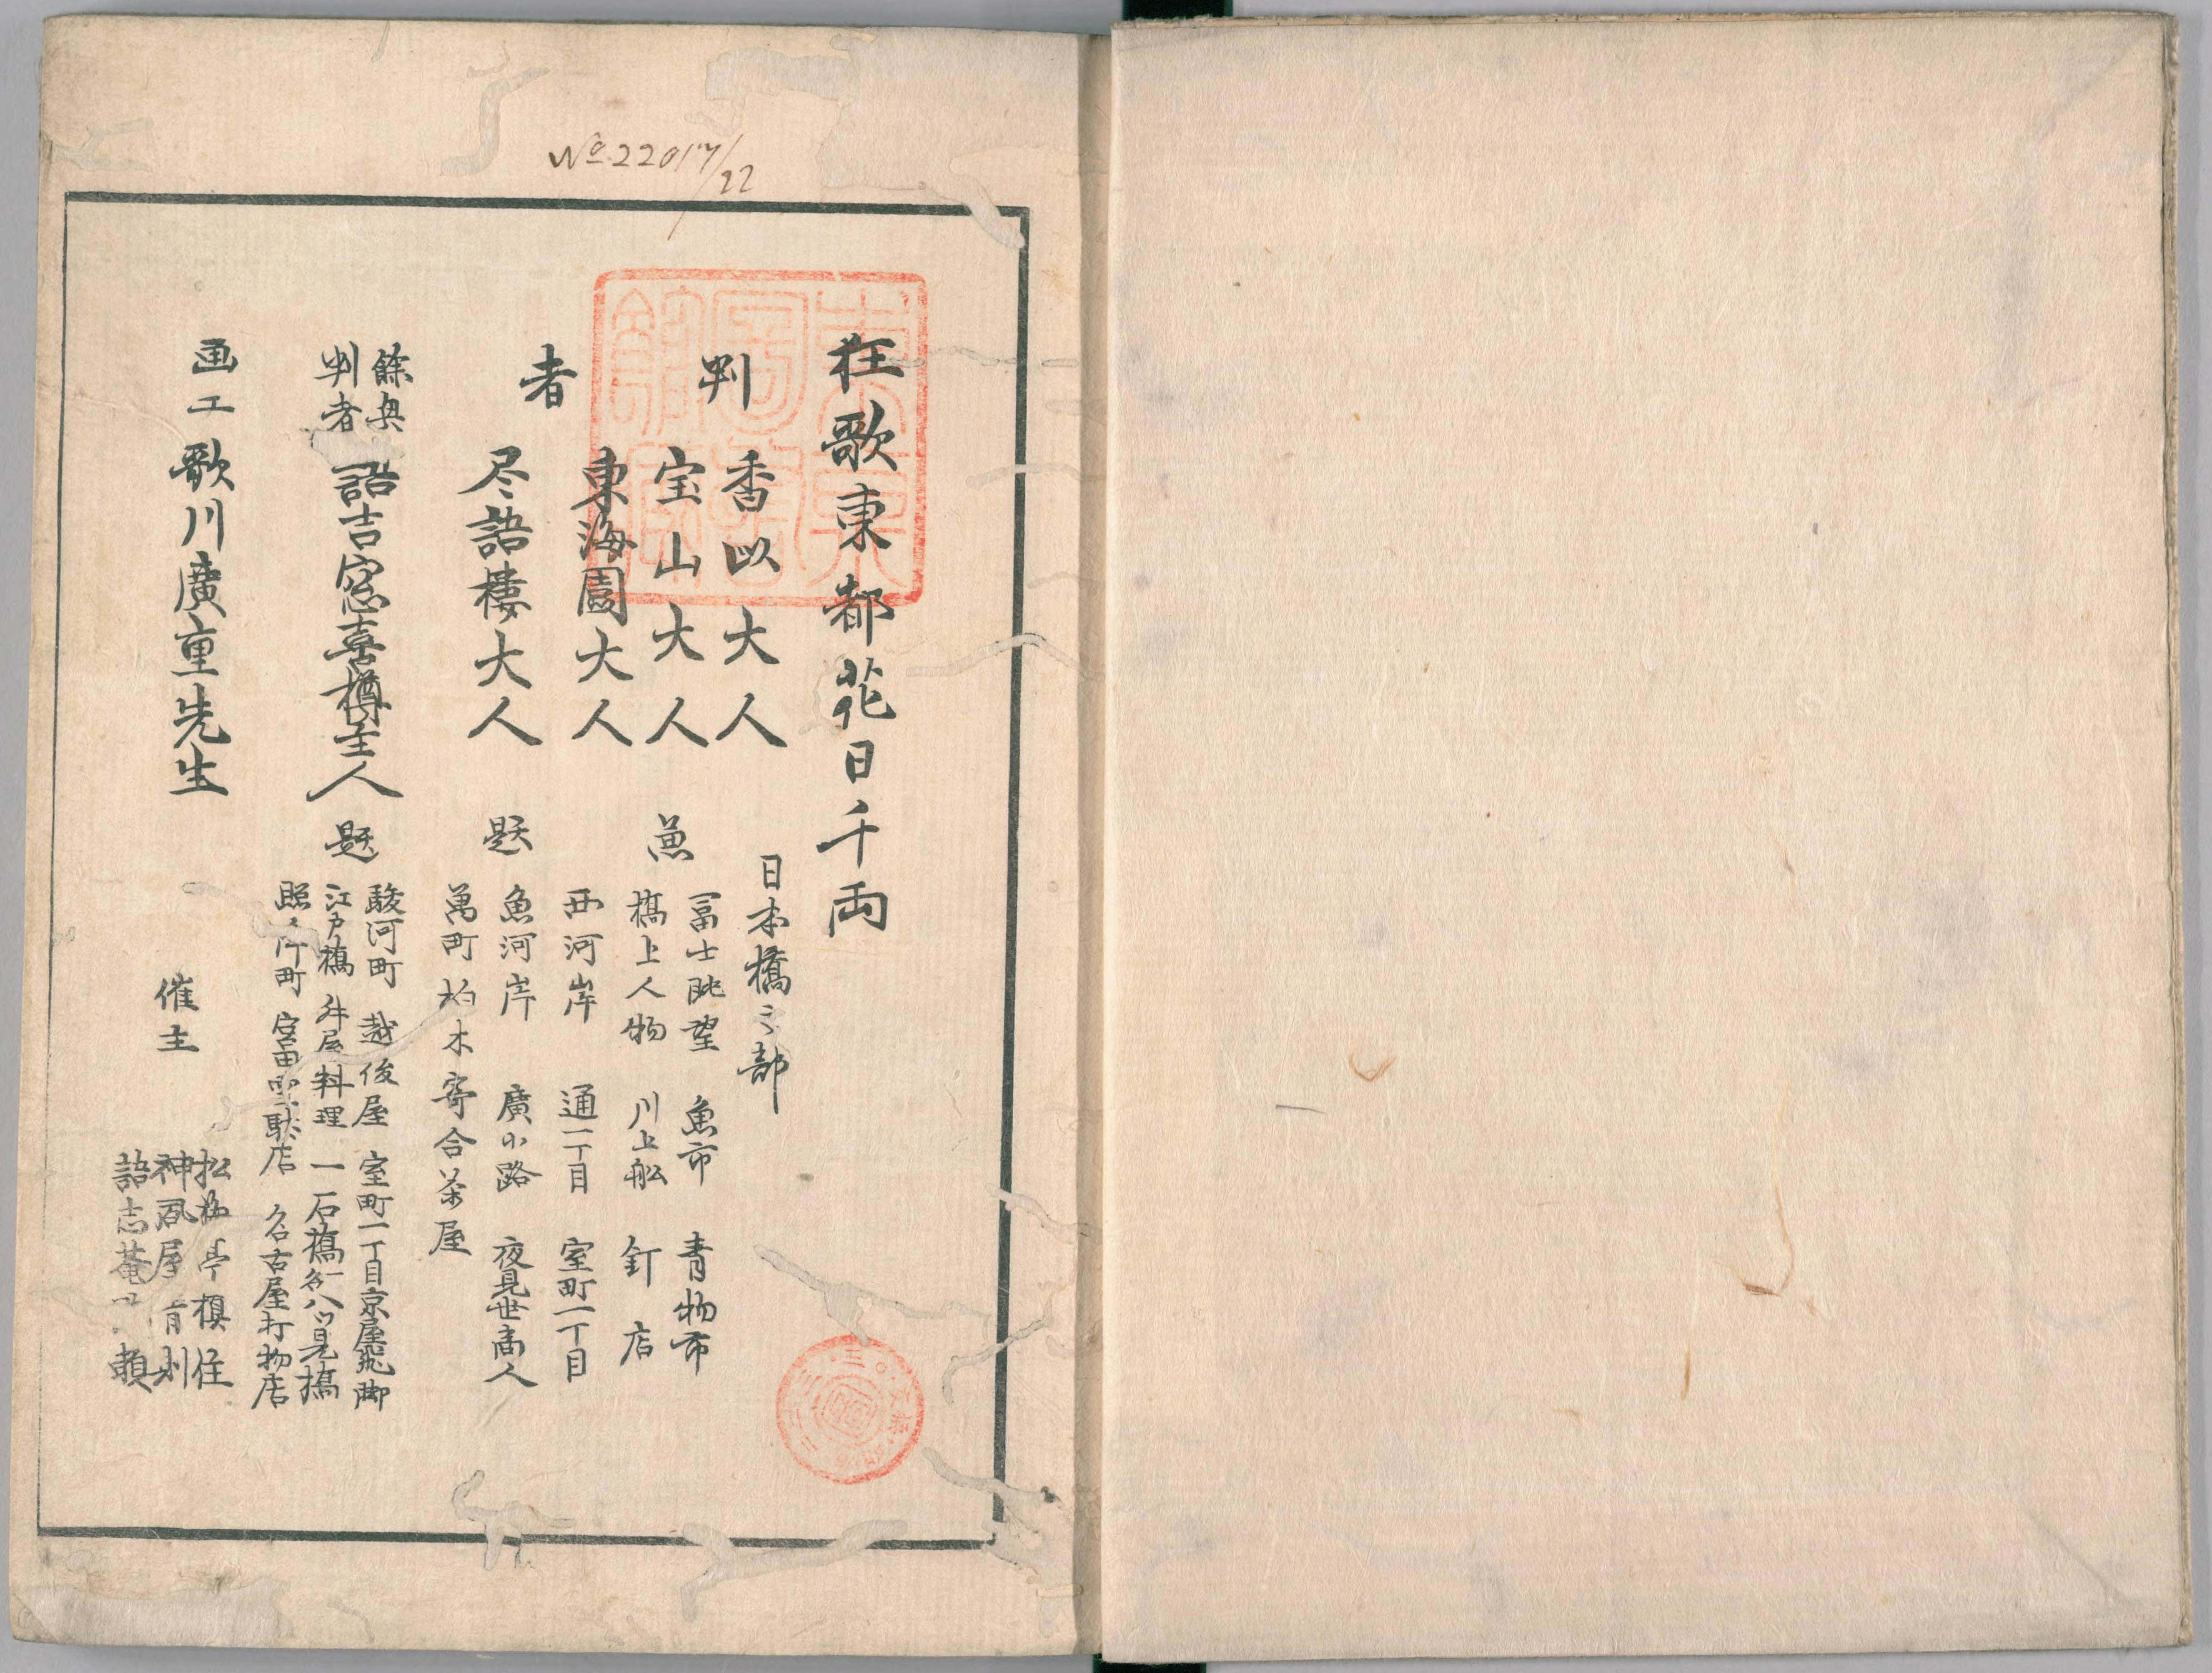 No 22017/22
狂歌東都花日千両
判者
香以大人
宝山大人
東海園大人
尽語楼大人
日本橋之部
兼題
冨士眺望 魚市 青物市
橋上人物 川上舩 釘店
西河岸 通一丁目 室町一丁目
魚河岸 廣小路 夜見世商人
萬町柏木寄合茶屋
餘興
判者
語吉窓喜樽主人
題
駿河町越後屋 室町一丁目京屋飛脚
江戸橋舛屋料理 一石橋一名八ツ見橋
照降町宮田雪駄店 名古屋打物店
画工 歌川廣重先生
催主
松 亭槙住
神風屋
語志菴 頼